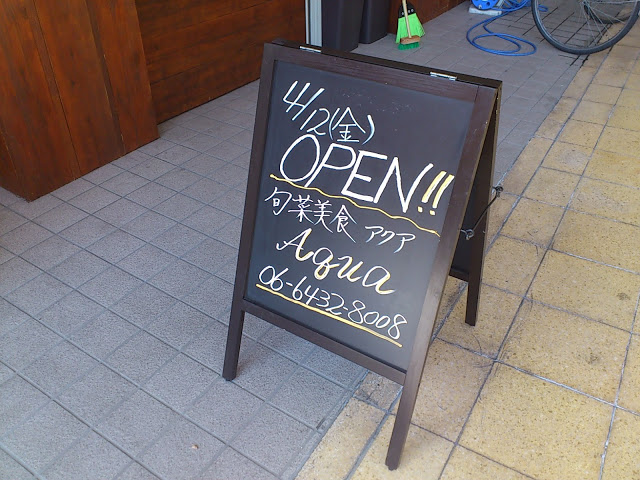 4/12(金)
OPEN!!
旬菜美食 アクア
Aqua
06-6432-8008